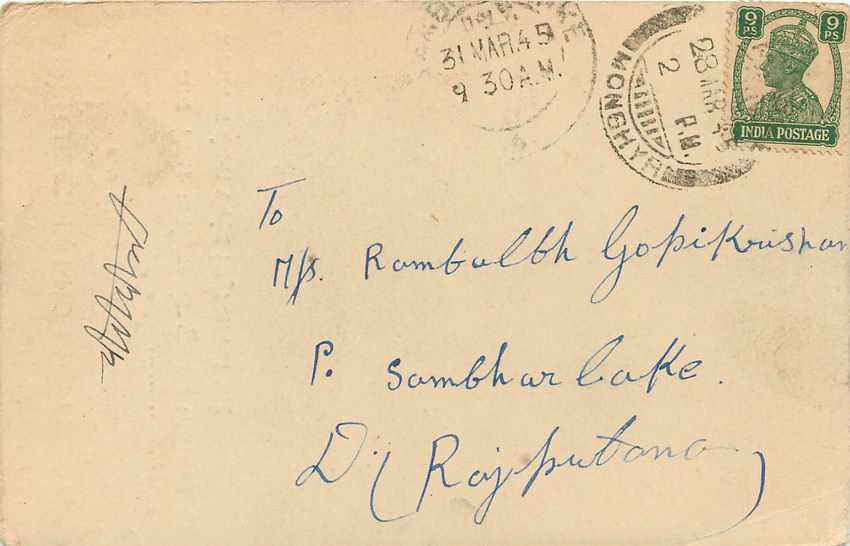 DELY.
31 MAR.45
9 30 A.M.
MONGHYR
28 MAR 4
2 P.M.
9 9
PS PS
INDIA POSTAGE
To
M/s. Rambalbh Gopikrishan
P. Sambhar Lake.
D. (Rajputana)